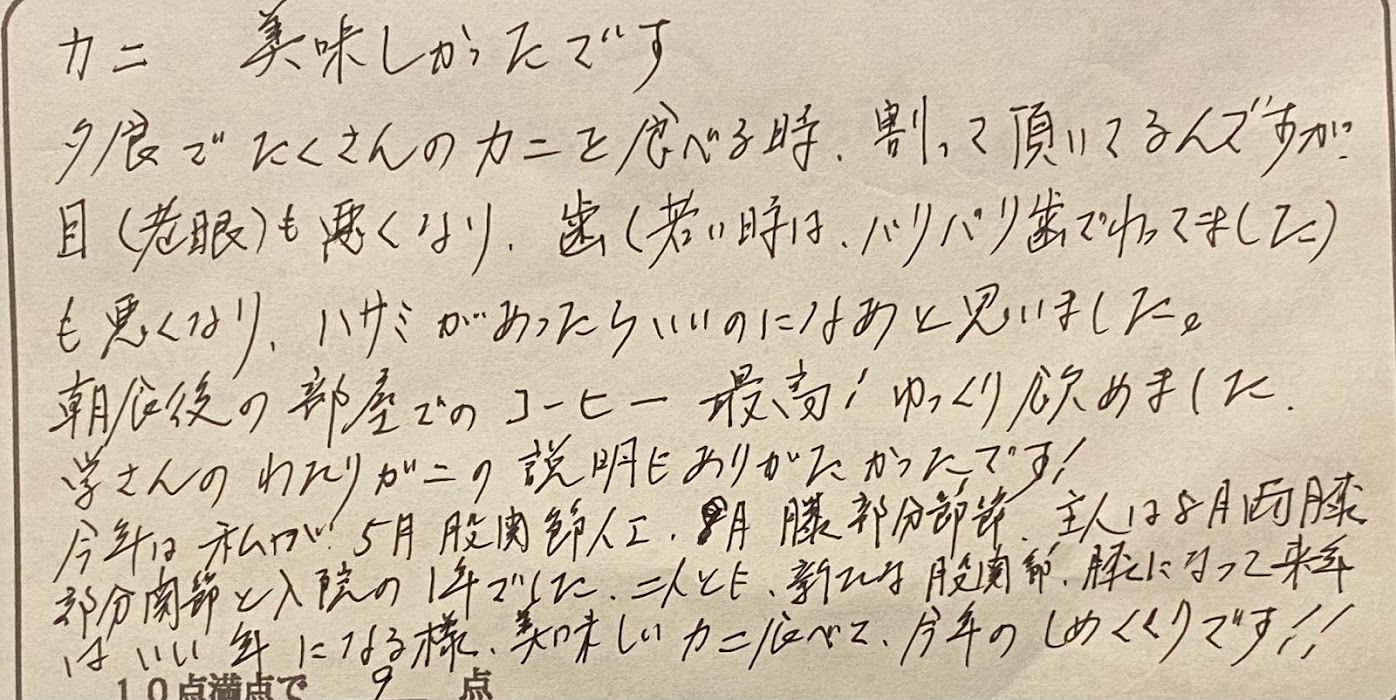 カニ 美味しかったです
夕食でたくさんのカニを食べる時、割って頂いてるんですが、
目(老眼)も悪くなり、歯(若い時は、バリバリ歯でわってました)
も悪くなり、ハサミがあったらいいのになあと思いました。
朝食後の部屋でのコーヒー最高!ゆっくり飲めました.
学さんのわたりガニの説明もありがたかったです!
今年は私が、5月股関節人工、8月膝部分節節、主人は8月両膝
部分関節と入院の1年でした、二人とも、新たな股関節、膝になって来年
はいい年になる様、美味しいカニ食べて、今年のしめくくりです!!
10点満点で 9 点